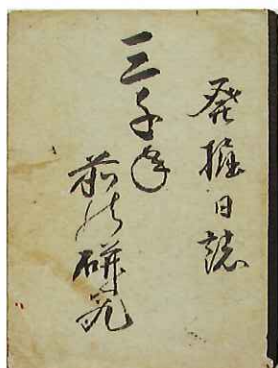 発掘日誌
三千年
前の研究